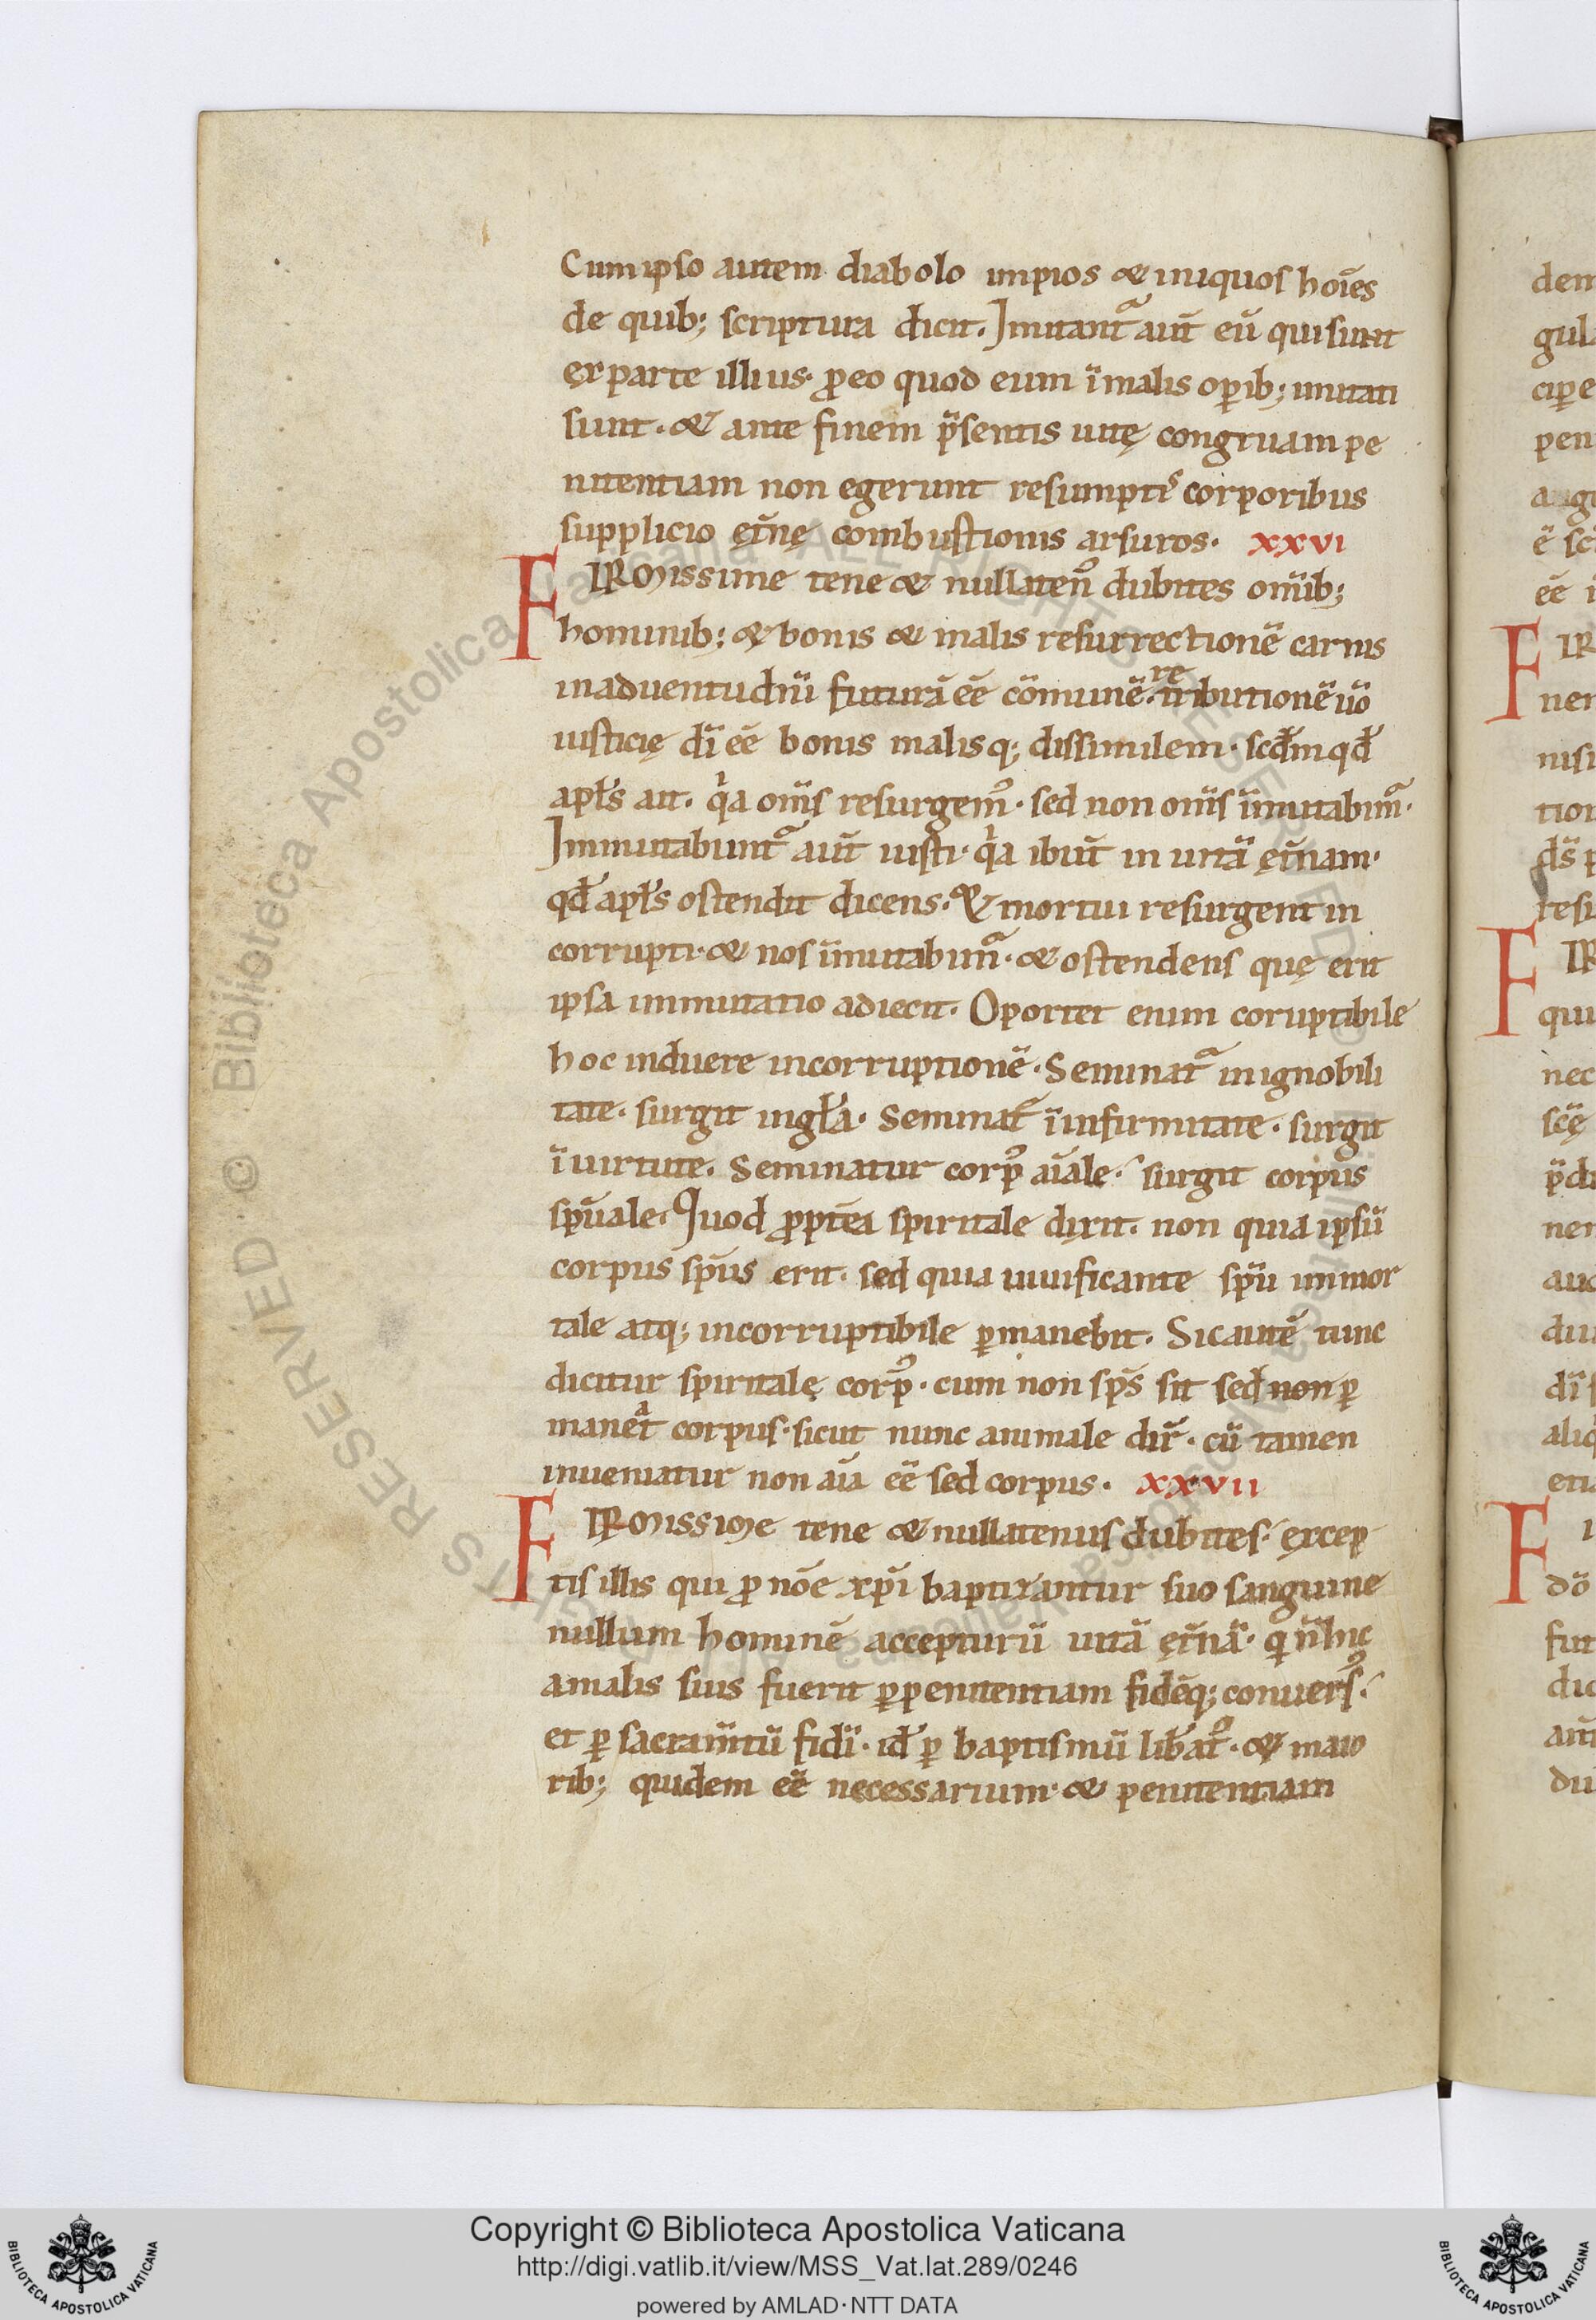 Cum ipso autem diabolo impios & iniquos hoīes
de quib; scriptura dicit. Imitant᷑ aut̄ eū qui sunt
ex parte illius. ꝓ eo quod eum ī malis oꝑib; imitati
sunt. & ante finem p̄sentis uitę congruam pe
nitentiam non egerunt resumptis corporibus
supplicio ęt̄nę combustionis arsuros. XXVI
FIRMissime tene & nullaten᾽ dubites om̄ib;
hominib; & bonis & malis resurrectionē carnis
in aduentu dn̄i futurā eē cōmunē. retributionē uō
iusticię dī eē bonis malisq; dissimilem. scd̄m qd̄
apl̄s ait. qa om̄s resurgem᾽. sed non om̄s īmutabim᷑.
Immutabunt᷑ aut̄ iusti. qa ibunt̄ in uitā ęt̄nam.
qd̄ apl̄s ostendit dicens. & mortui resurgent in
corrupti. & nos īmutabim᷑. & ostendens quę erit
ipsa immutatio adiecit. Oportet enim coruptibile
hoc induere incorruptionē. Seminat᷑ in ignobili
tate. surgit in gl̄a. Seminat᷑ ī infirmitate. surgit
ī uirtute. Seminatur corp᾽ aīale. surgit corpus
sp̄uale. Quod ꝓpt̄ea spiritale dixit. non quia ipsū
corpus sp̄us erit. sed quia uiuificante sp̄u immor
tale atq; incorruptibile ꝑmanebit. Sic autē tunc
dicitur spiritalę corp᾽. cum non sp̄s sit sed non ꝑ
maneat corpus. sicut nunc animale dir̄. cū tamen
inueniatur non aīa eē sed corpus. XXVII
FIRMissiMe tene & nullatenus dubites. excep
tis illis qui ꝓ nōe xp̄i baptizantur suo sanguine
nullum hominē accepturū uitā ęt̄nā. q n̄ hic
a malis suis fuerit ꝑ penitentiam fidēq; conuers᾽.
et ꝑ sacram̄tū fidī. id̄ ꝑ baptismū lib̄at᾽. & maio
rib; quidem eē necessarium. & penitentiam
dem
gul
cipe
pen
augu
ē sc
eē i
FIR
ner
nisi
tion
ds̄ p
resu
FIR
qui
nec
scę
p̄di
nem
aud
diui
dī s
aliq
etia
FI
dō
fut
dic
ant
du
Copyright © Biblioteca Apostolica Vaticana
http://digi.vatlib.it/view/MSS_Vat.lat.289/0246
powered by AMLAD·NTT DATA
BIBLIOTECA APOSTOLICA VATICANA
BIBLIOTECA APOSTOLICA VATICANA